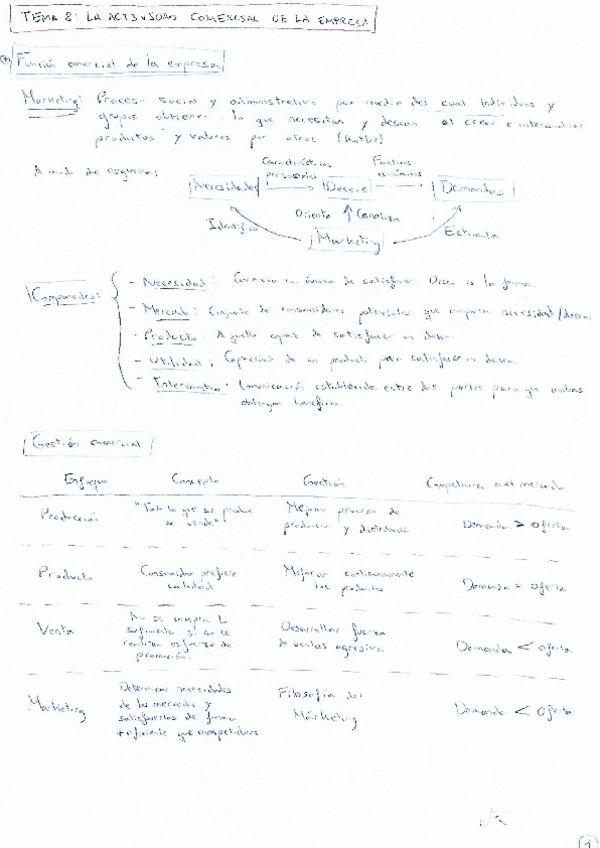 TEMA 8: LA ACTIVIDAD COMERCIAL DE LA EMPRESA
Función comercial de la empresa
Marketing: Proceso social y administrativo por medio del cual individuos y
grupos obtienen lo que necesitan y desean al crear e intercambiar
productos y valores por otros (Kotler)
A modo de esquema:
Características personales
Factores económicos
Necesidades
Deseos
Demandas
Identifica
Orienta
Canaliza
Estimula
Marketing
Componentes:
- Necesidad: Carencia de satisfacer. Deseo es la forma.
- Mercado: Conjunto de consumidores potenciales que necesidad/deseo
- Producto: Aquello capaz de satisfacer un deseo
- Utilidad: Capacidad de un producto para satisfacer un deseo
- Intercambio: Comunicación establecida entre dos partes para que ambas
obtengan beneficio
Gestión comercial
Enfoque Concepto Gestión Competencia en el mercado
Producción "Todo lo que se produce se vende" Mejorar proceso de producción y distribución Demanda > Oferta
Producto Consumidor prefiere calidad Mejorar continuamente los productos Demanda = Oferta
Venta No se compra lo suficiente si no se realizan esfuerzos de promoción. Desarrollar fuerza de ventas agresiva Demanda < Oferta
Marketing Determinar necesidades de los mercados y satisfacerlas de forma + eficiente que competidores Filosofía del Márketing Demanda < Oferta
1